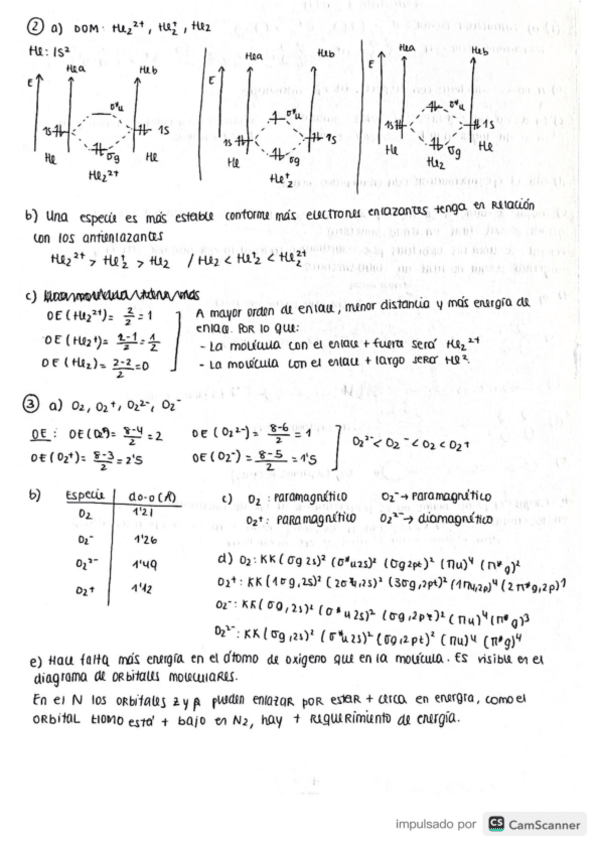 ② a) DOM: He₂²⁺, He₂⁺, He₂
He: 1s²
E Hea Heb
σ*u
1s 1s
He σg He
He₂²⁺
E Hea Heb
σ*u
1s 1s
He σg He
He₂⁺
E Hea Heb
σ*u
1s 1s
He σg He
He₂
b) Una especie es más estable conforme más electrones enlazantes tenga en relación
con los antienlazantes
He₂²⁺ > He₂⁺ > He₂ / He₂ < He₂⁺ < He₂²⁺
c)
OE (He₂²⁺) = 2/2 = 1
OE (He₂⁺) = 2-1/2 = 1/2
OE (He₂) = 2-2/2 = 0
A mayor orden de enlace, menor distancia y más energía de
enlace. Por lo que:
- La molécula con el enlace + fuerte será He₂²⁺
- La molécula con el enlace + largo será He².
③ a) O₂, O₂⁺, O₂²⁻, O₂⁻
OE: OE(O₂) = 8-4/2 = 2 OE (O₂²⁻) = 8-6/2 = 1
OE (O₂⁺) = 8-3/2 = 2'5 OE (O₂⁻) = 8-5/2 = 1'5
O₂²⁻ < O₂⁻ < O₂ < O₂⁺
b) Especie do-o (Å)
O₂ 1'21
O₂⁻ 1'26
O₂²⁻ 1'49
O₂⁺ 1'12
c) O₂: Paramagnético O₂⁻ → Paramagnético
O₂⁺: Paramagnético O₂²⁻ → diamagnético
d) O₂: KK (σg 2s)² (σ*u 2s)² (σg 2pz)² (πu)⁴ (π*g)²
O₂⁺: KK (1σg, 2s)² (2σ*u, 2s)² (3σg, 2pz)² (1πu, 2p)⁴ (2π*g, 2p)¹
O₂⁻: KK (σg, 2s)² (σ*u 2s)² (σg, 2pz)² (πu)⁴ (π*g)³
O₂²⁻: KK (σg, 2s)² (σ*u 2s)² (σg, 2pz)² (πu)⁴ (π*g)⁴
e) Hace falta más energía en el átomo de oxígeno que en la molécula. Es visible en el
diagrama de orbitales moleculares.
En el N los orbitales 2 y p pueden enlazar por estar + cerca en energía, como el
orbital está + bajo en N₂, hay + requerimiento de energía.
impulsado por CS CamScanner